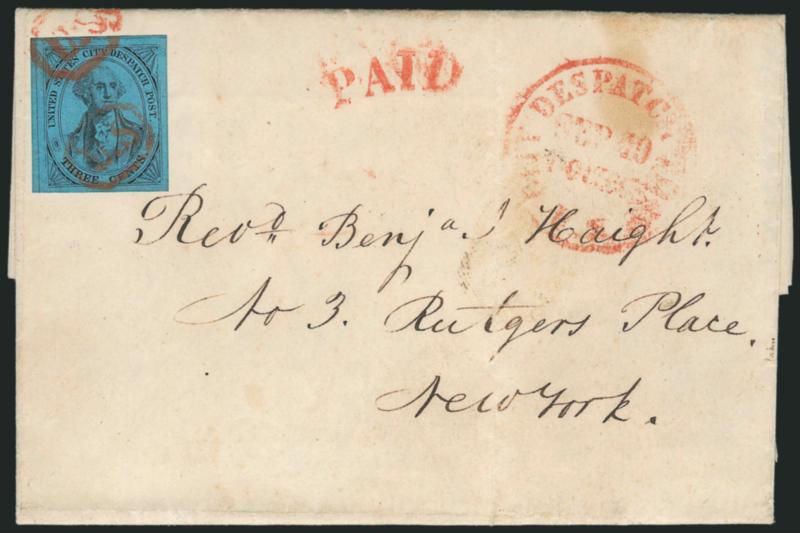 UNITED STATES CITY DESPATCH POST.
THREE CENTS.
U.S
PAID
CITY DESPATCH POST
SEP 10
O'Clock
U.S
Revd. Benja. I Haight.
No 3. Rutgers Place.
New York.